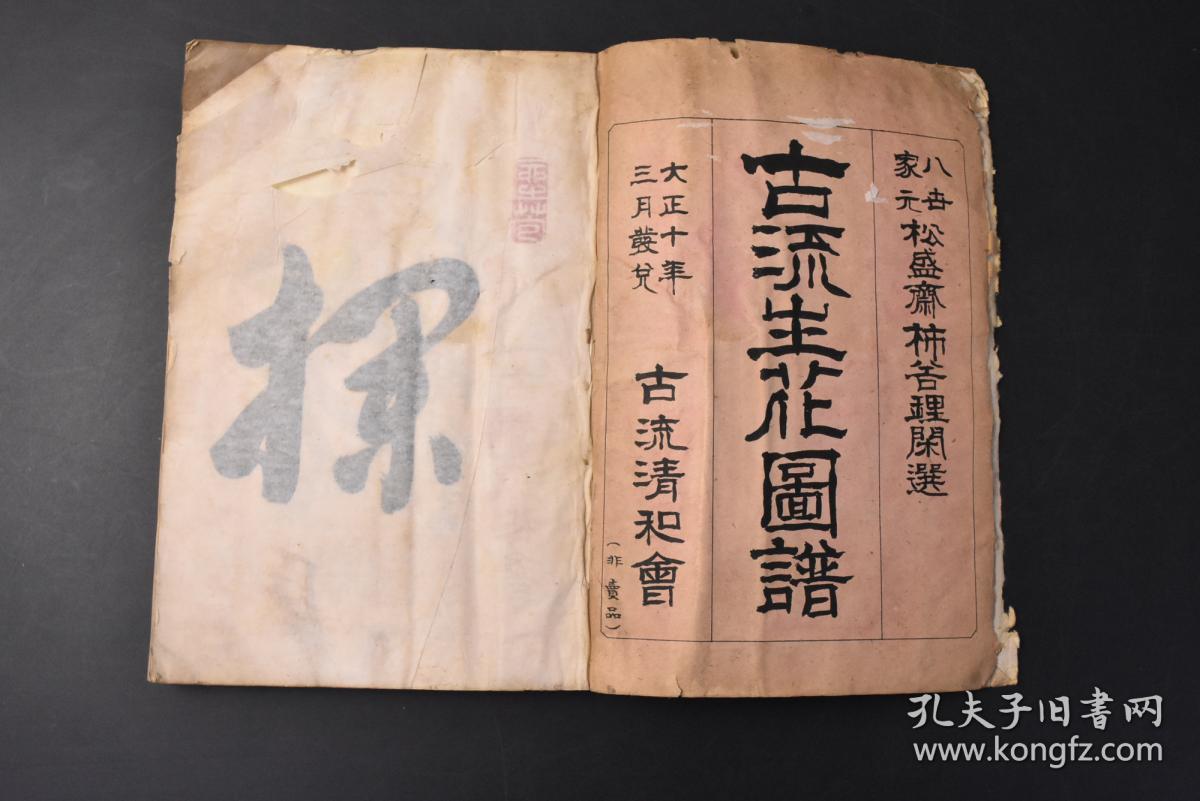 八世
家元
松盛齋柿谷理閑選
古流生花圖譜
大正十年
三月發兌
古流清和會
(非賣品)
孔夫子旧书网
www.kongfz.com